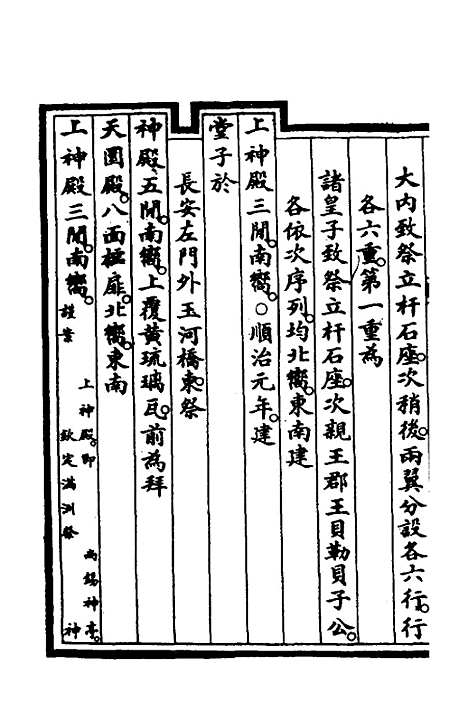 大内致祭立杆石座次稍後兩翼分設各六行行
各六重第一重為
諸皇子致祭立杆石座次親王郡王貝勒貝子公
各依次序列均北嚮東南建
上神殿三間南嚮○順治元年建
堂子於
長安左門外玉河橋東祭
神殿五間南嚮上覆黄琉璃瓦前為拜
天圜殿八面櫺扉北嚮東南
上神殿三間南嚮謹案 上神殿即 尚錫神亭 欽定滿洲祭 神